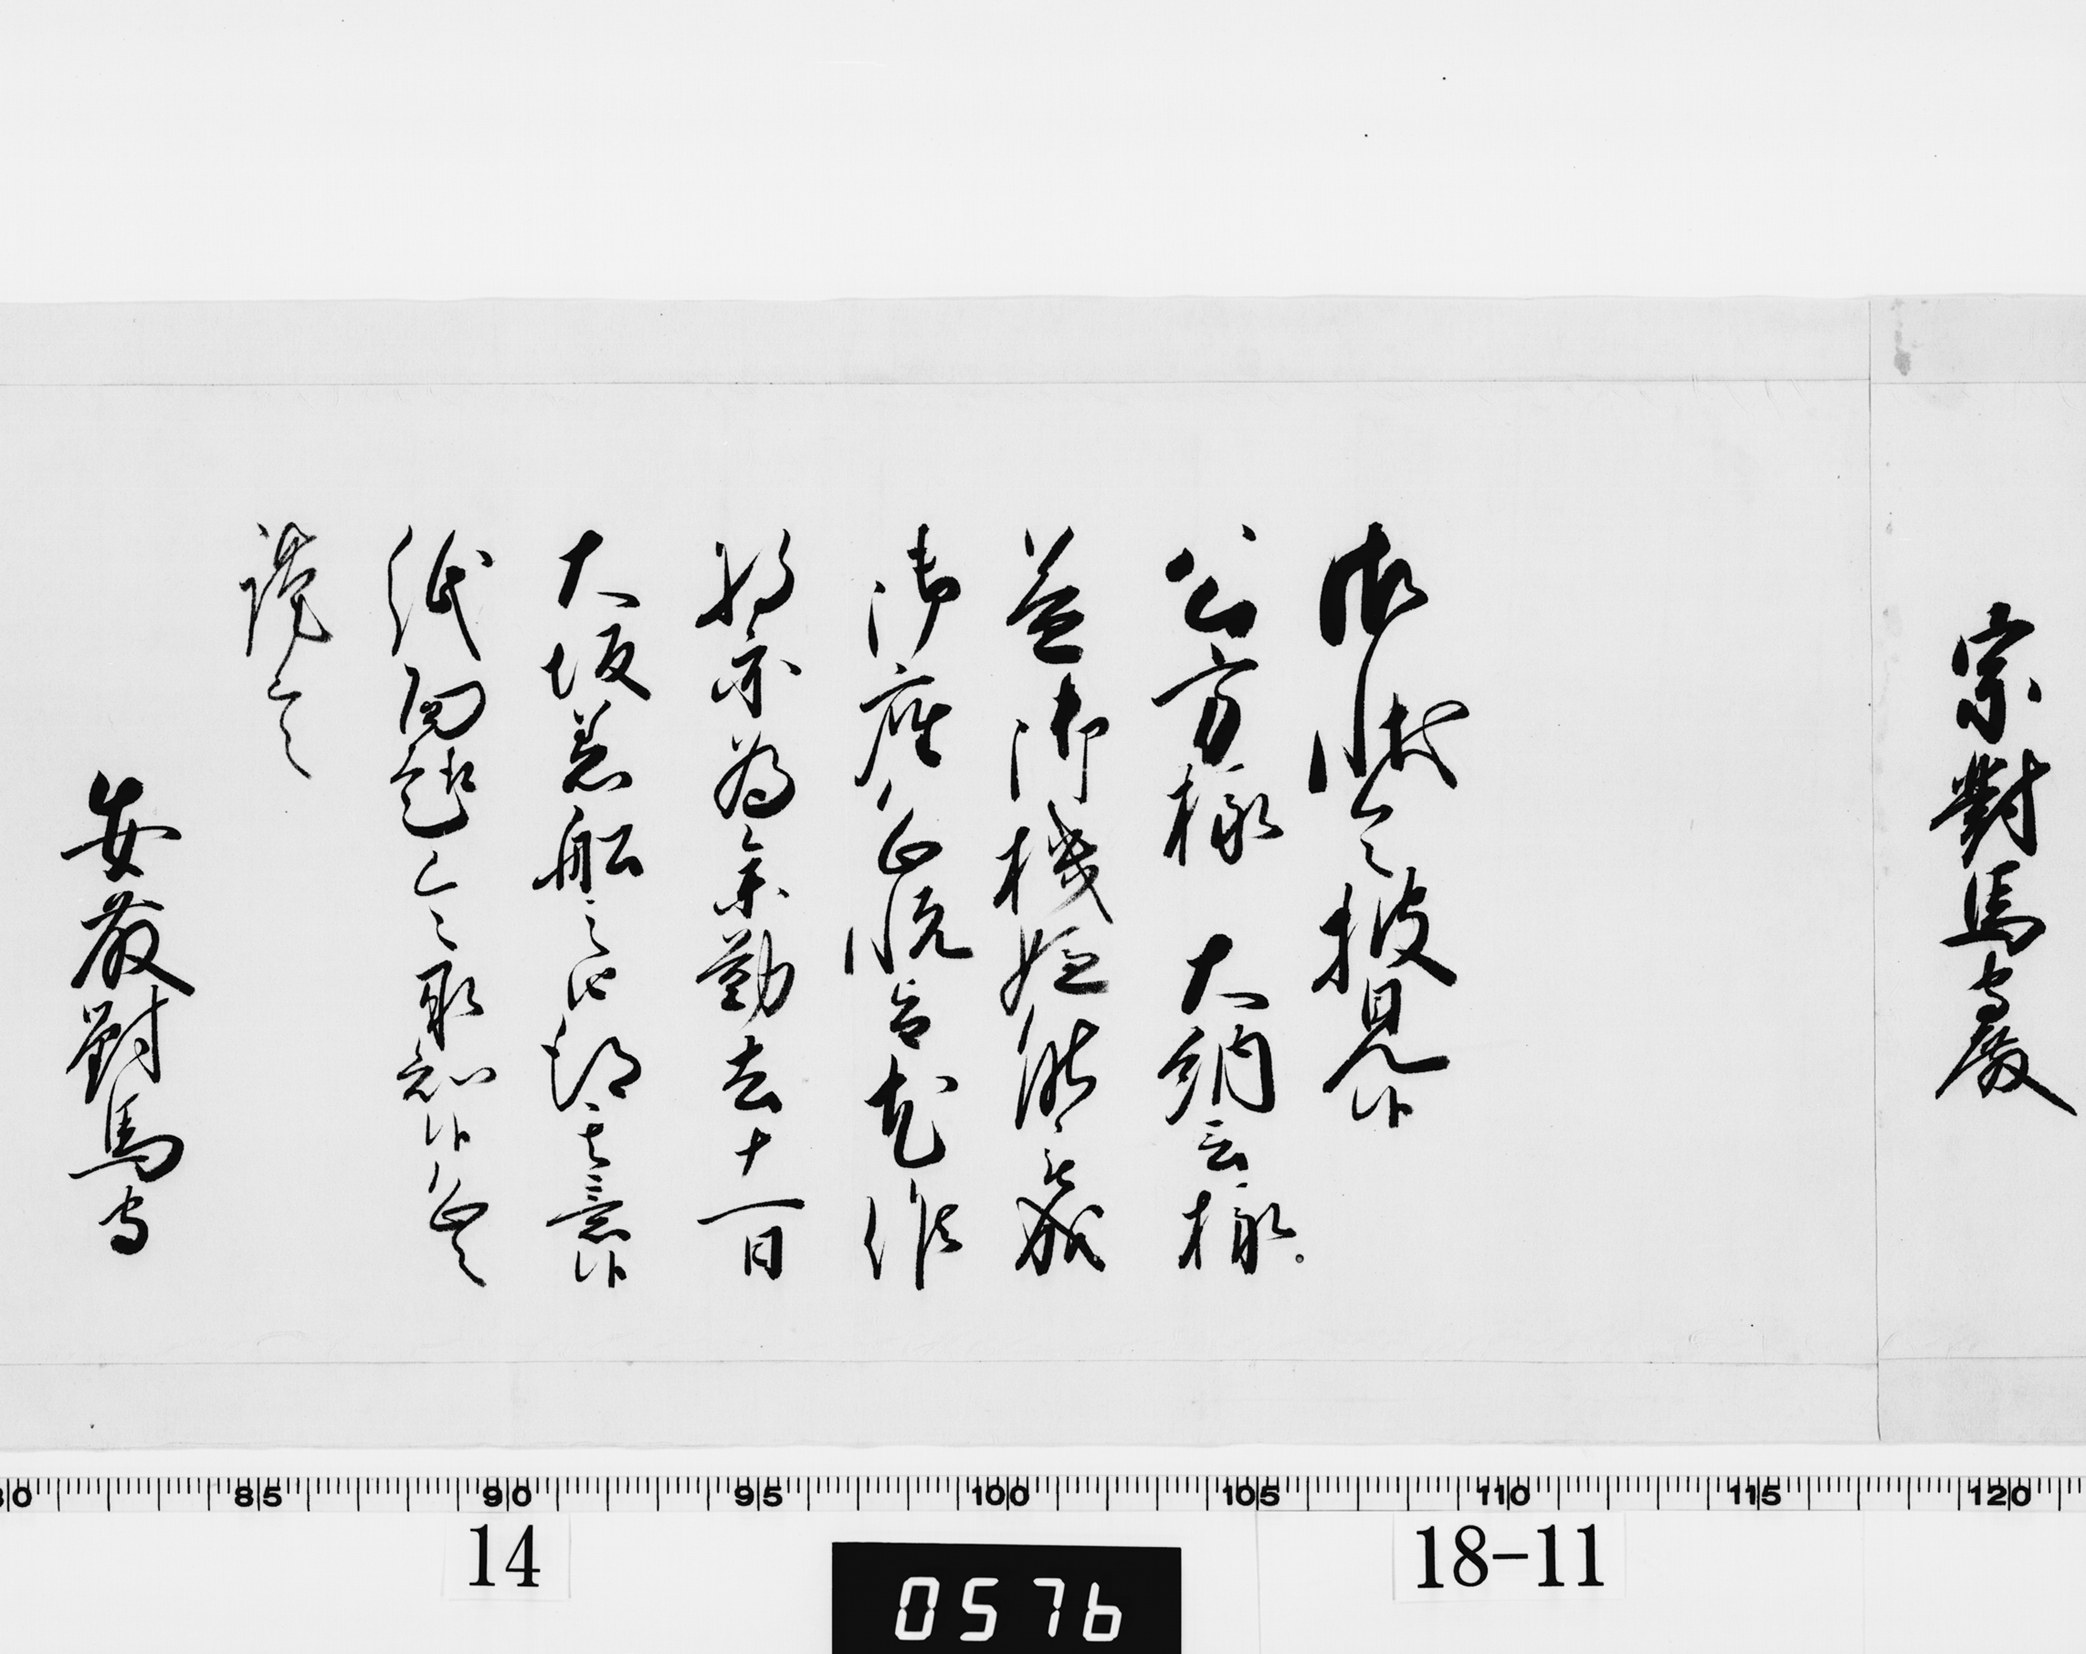 宗對馬守殿
御状令披見候
公方様 大納言様
益御機嫌能被成
御座候间恐悦旨尤候
将亦為参勤去十一日
大坂着船之由得其意候
紙面趣令承知候恐々
謹言
安藤對馬守
80 85 90 95 100 105 110 115 120
14
18-11
0576